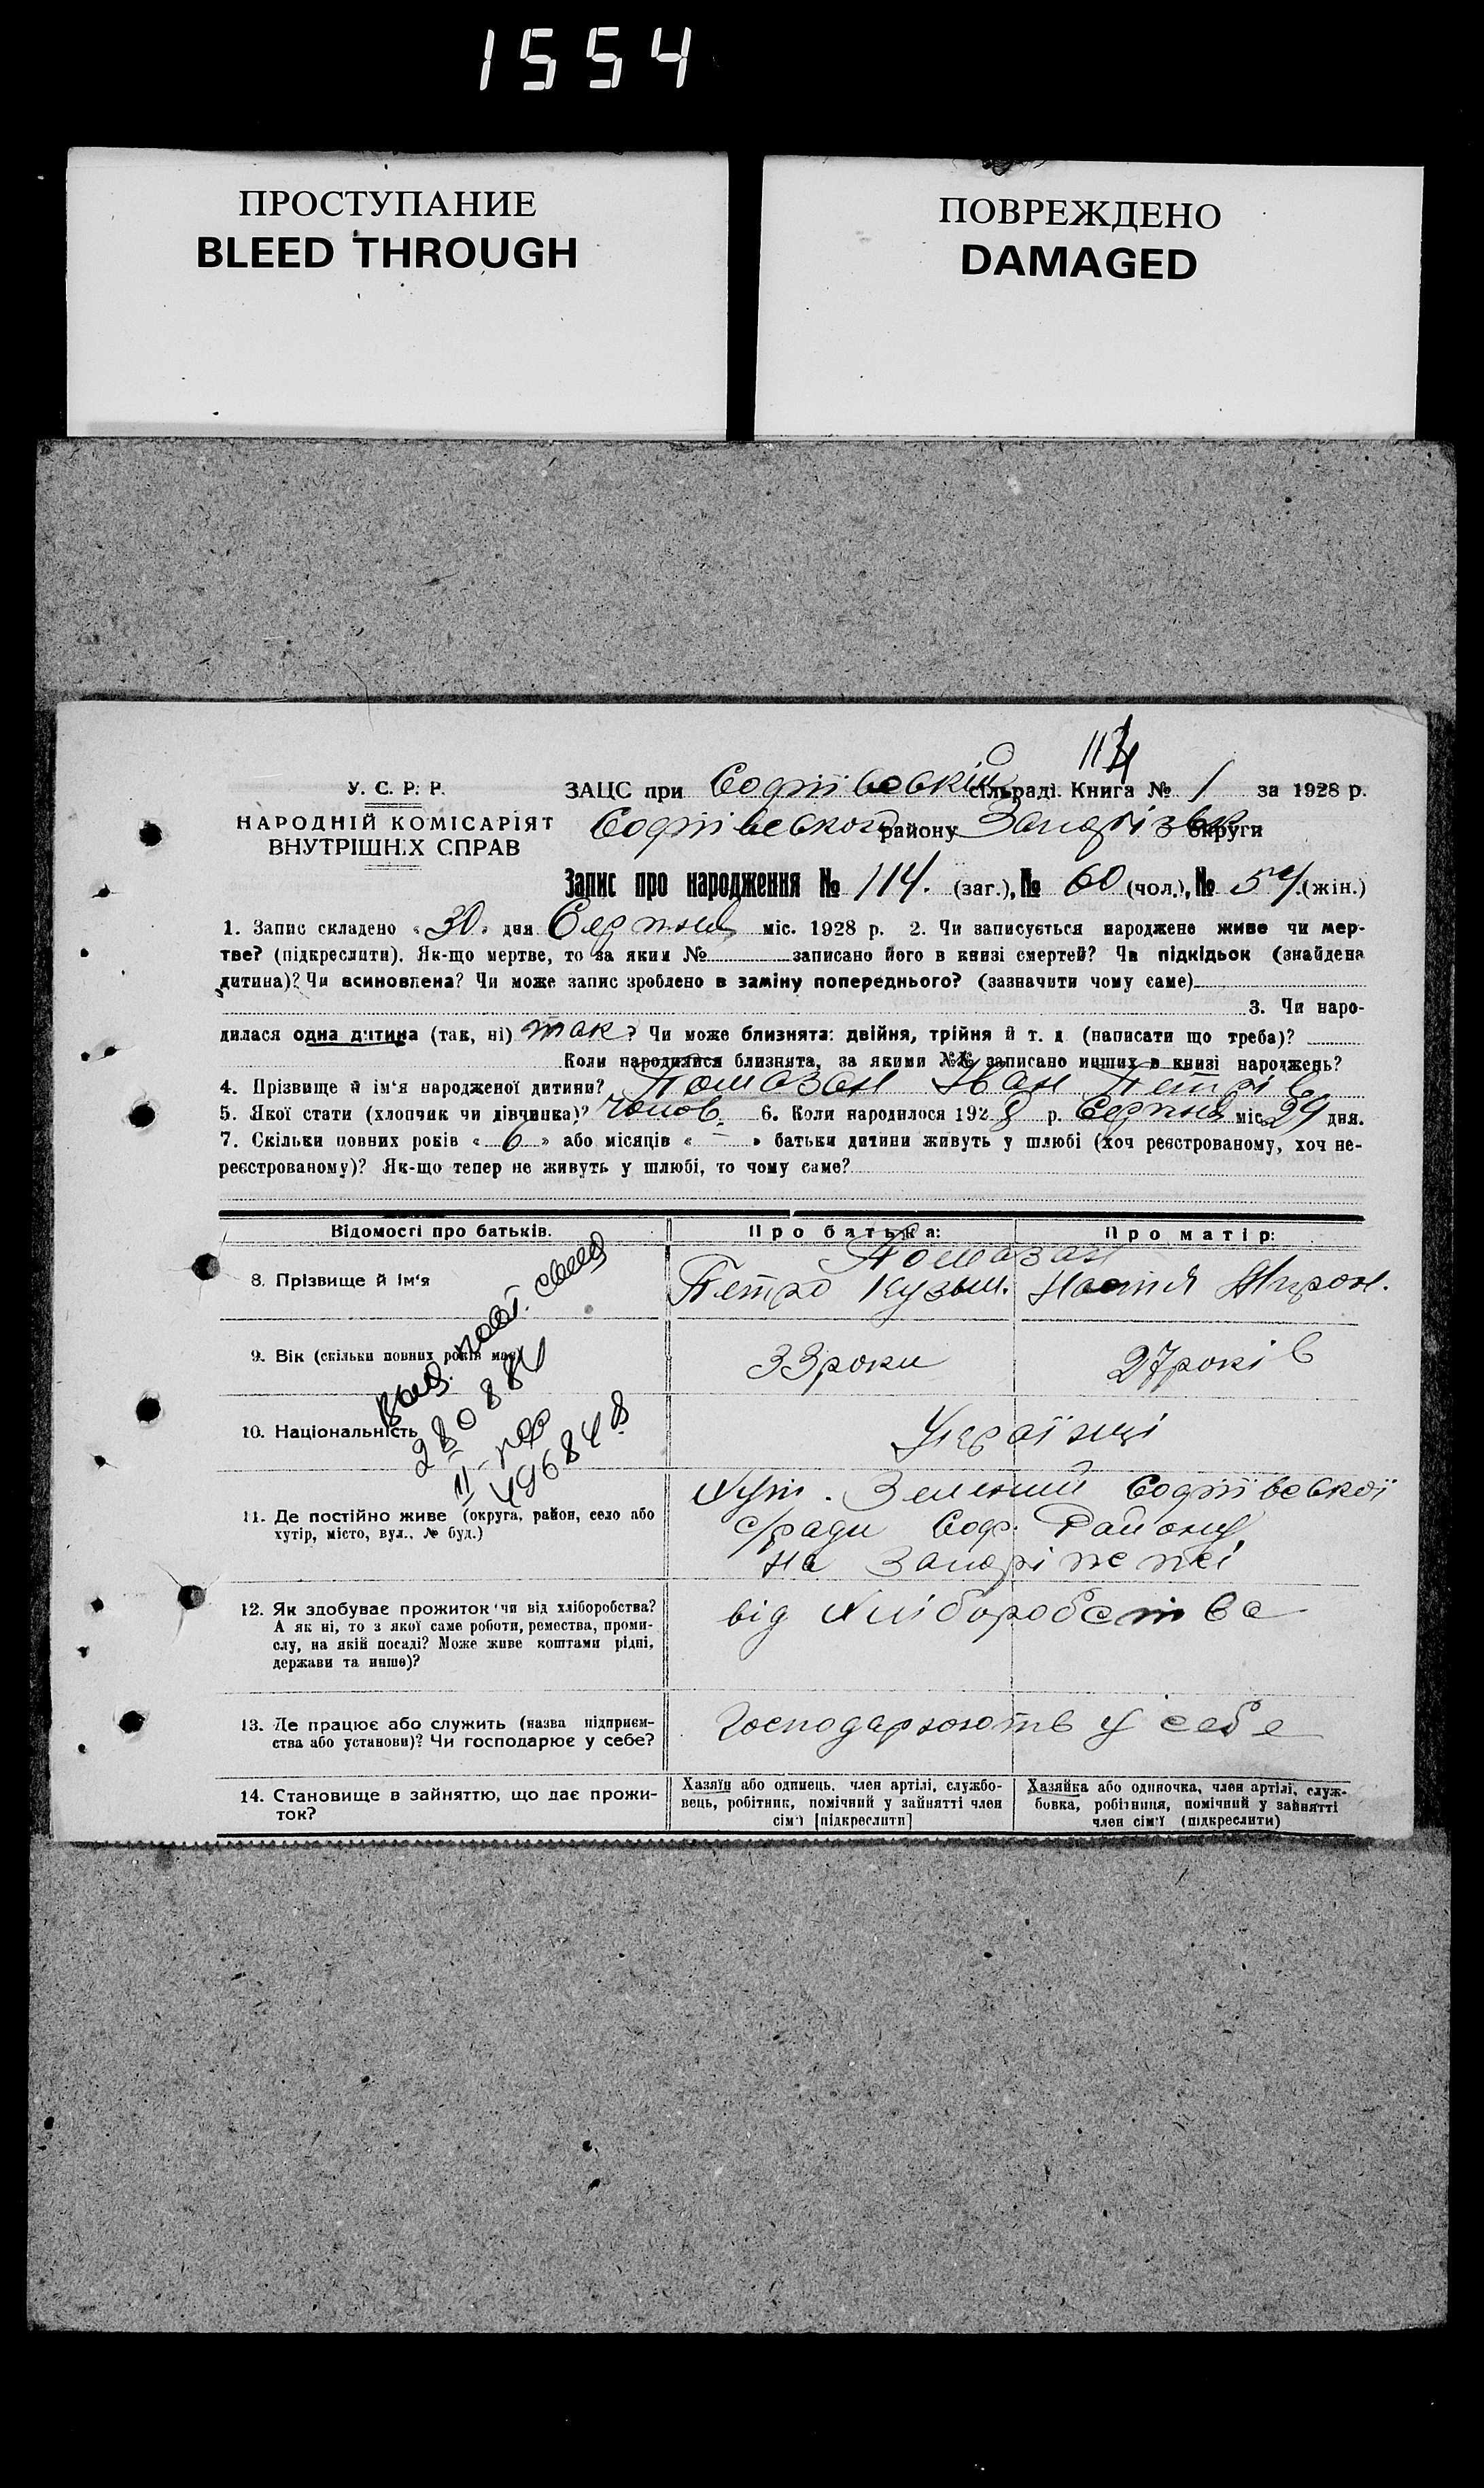 1554
ПРОСТУПАНИЕ
BLEED THROUGH
ПОВРЕЖДЕНО
DAMAGED
114
У. С. Р. Р.
НАРОДНІЙ КОМІСАРІЯТ
ВНУТРІШНІХ СПРАВ
ЗАЦС при Софіївській сільраді. Книга № 1 за 1928 р.
Софіївського району Запоріжж округи
Запис про народження № 114. (заг.), № 60 (чол.), № 54. (жін.)
1. Запис складено «30» дня Серпня міс. 1928 р. 2. Чи записується народжене живе чи мер-
тве? (підкреслити). Як-що мертве, то за яким № записано його в книзі смертей? Чи підкідьок (знайдена
дитина)? Чи всиновлена? Чи може запис зроблено в заміну попереднього? (зазначити чому саме)
3. Чи наро-
дилася одна дитина (так, ні) так? Чи може близнята: двійня, трійня й т. д (написати що треба)?
Коли народилися близнята, за якими №№ записано инших в книзі народжень?
4. Прізвище й ім'я народженої дитини? Помазан Іван Петрів
5. Якої стати (хлопчик чи дівчинка)? чолов. 6. Коли народилося 1928 р. Серпня міс. 29 дня.
7. Скільки повних років «6» або місяців « – » батьки дитини живуть у шлюбі (хоч реєстрованому, хоч не-
реєстрованому)? Як-що тепер не живуть у шлюбі, то чому саме?
Відомості про батьків.
Про батька:
Про матір:
8. Прізвище й ім'я
Помазан
Петро Кузьм.
Настя Мирон.
9. Вік (скільки повних років має)
33 роки
27 років
10. Національність
Українці
11. Де постійно живе (округа, район, село або
хутір, місто, вул., № буд.)
Хут. Зелений Софіївської
с/ради Соф. Району
на Запоріжжі
12. Як здобуває прожиток чи від хліборобства?
А як ні, то з якої саме роботи, ремества, проми-
слу, на якій посаді? Може живе коштами рідні,
держави та инше)?
від Хліборобства
13. Де працює або служить (назва підприєм-
ства або установи)? Чи господарює у себе?
Господарюють у себе
14. Становище в зайняттю, що дає прожи-
ток?
Хазяїн або одинець, член артілі, службо-
вець, робітник, помічний у зайнятті член
сім'ї [підкреслити]
Хазяйка або одиночка, член артілі, служ-
бовка, робітниця, помічний у зайнятті
член сім'ї (підкреслити)
280884
II-
496848